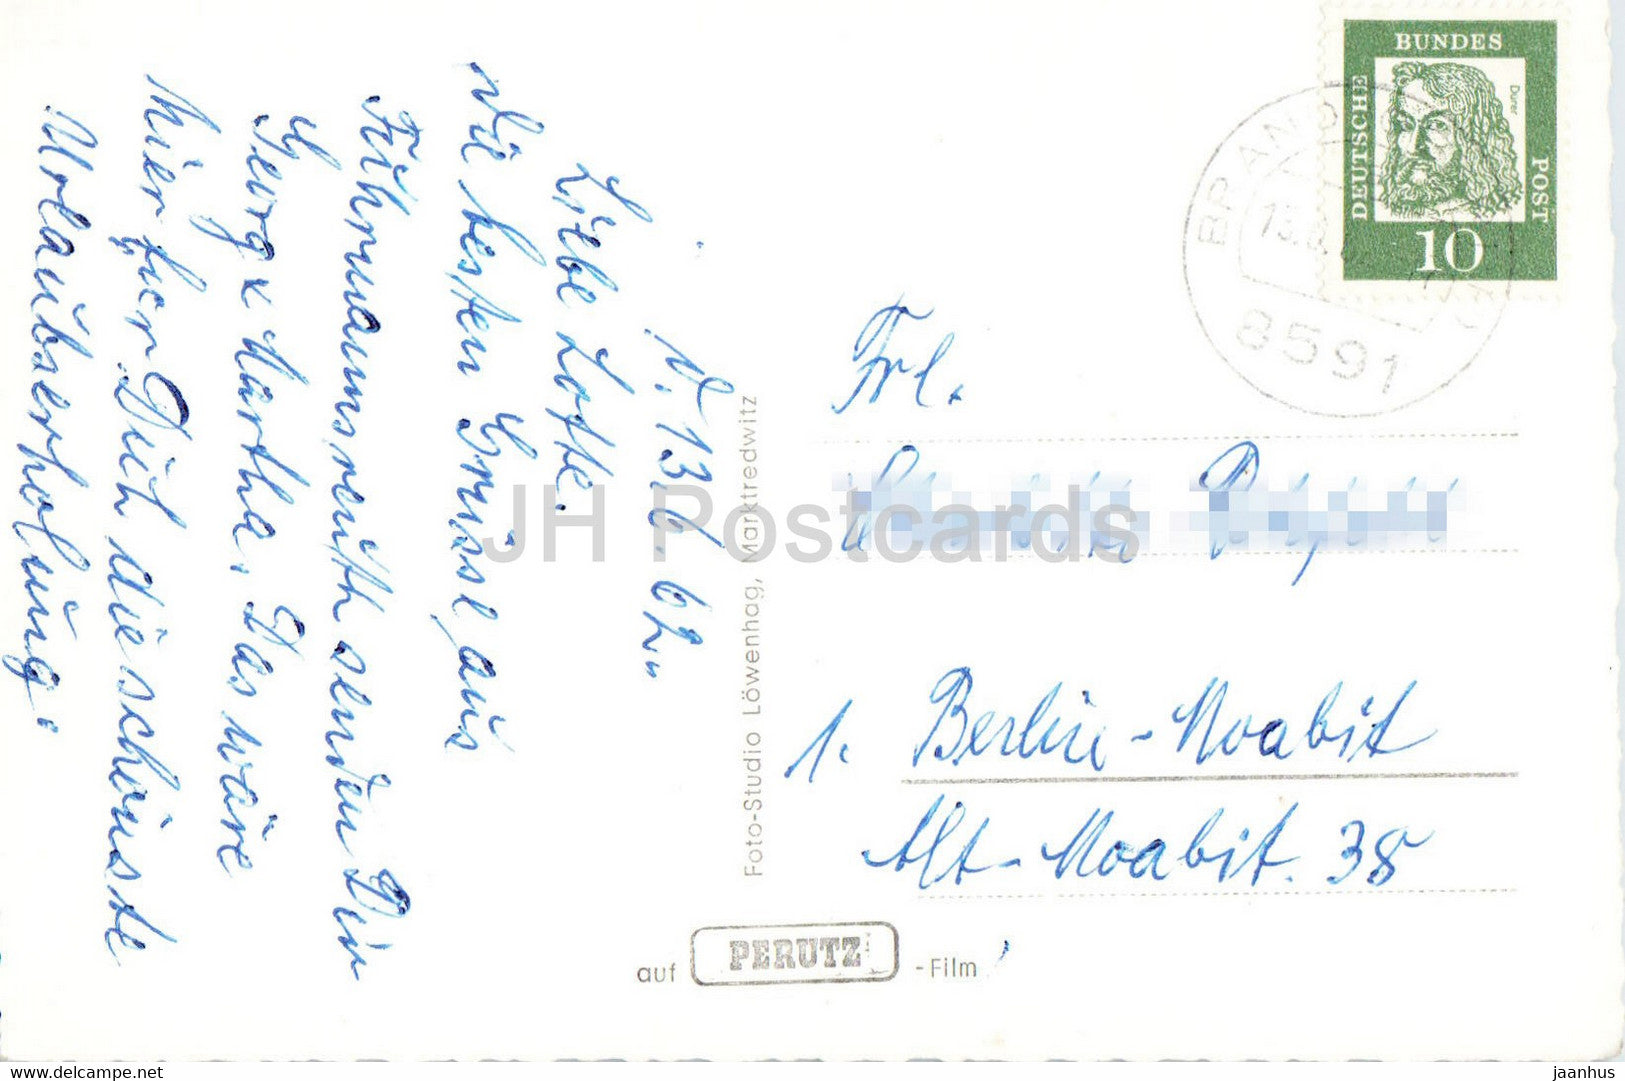 d. 13.6.62.
Liebe Lotte.
Die besten Grüsse aus
Führmannsreuth senden Dir
Georg x Martha. Das wäre
hier für Dich die schönste
Urlaubserholung.
Foto-Studio Löwenhag, Marktredwitz
auf PERUTZ -Film
DEUTSCHE
BUNDES
POST
Dürer
10
BRAND
8591
Frl.
1. Berlin-Moabit
Alt-Moabit. 38
JH Postcards
jaanhus